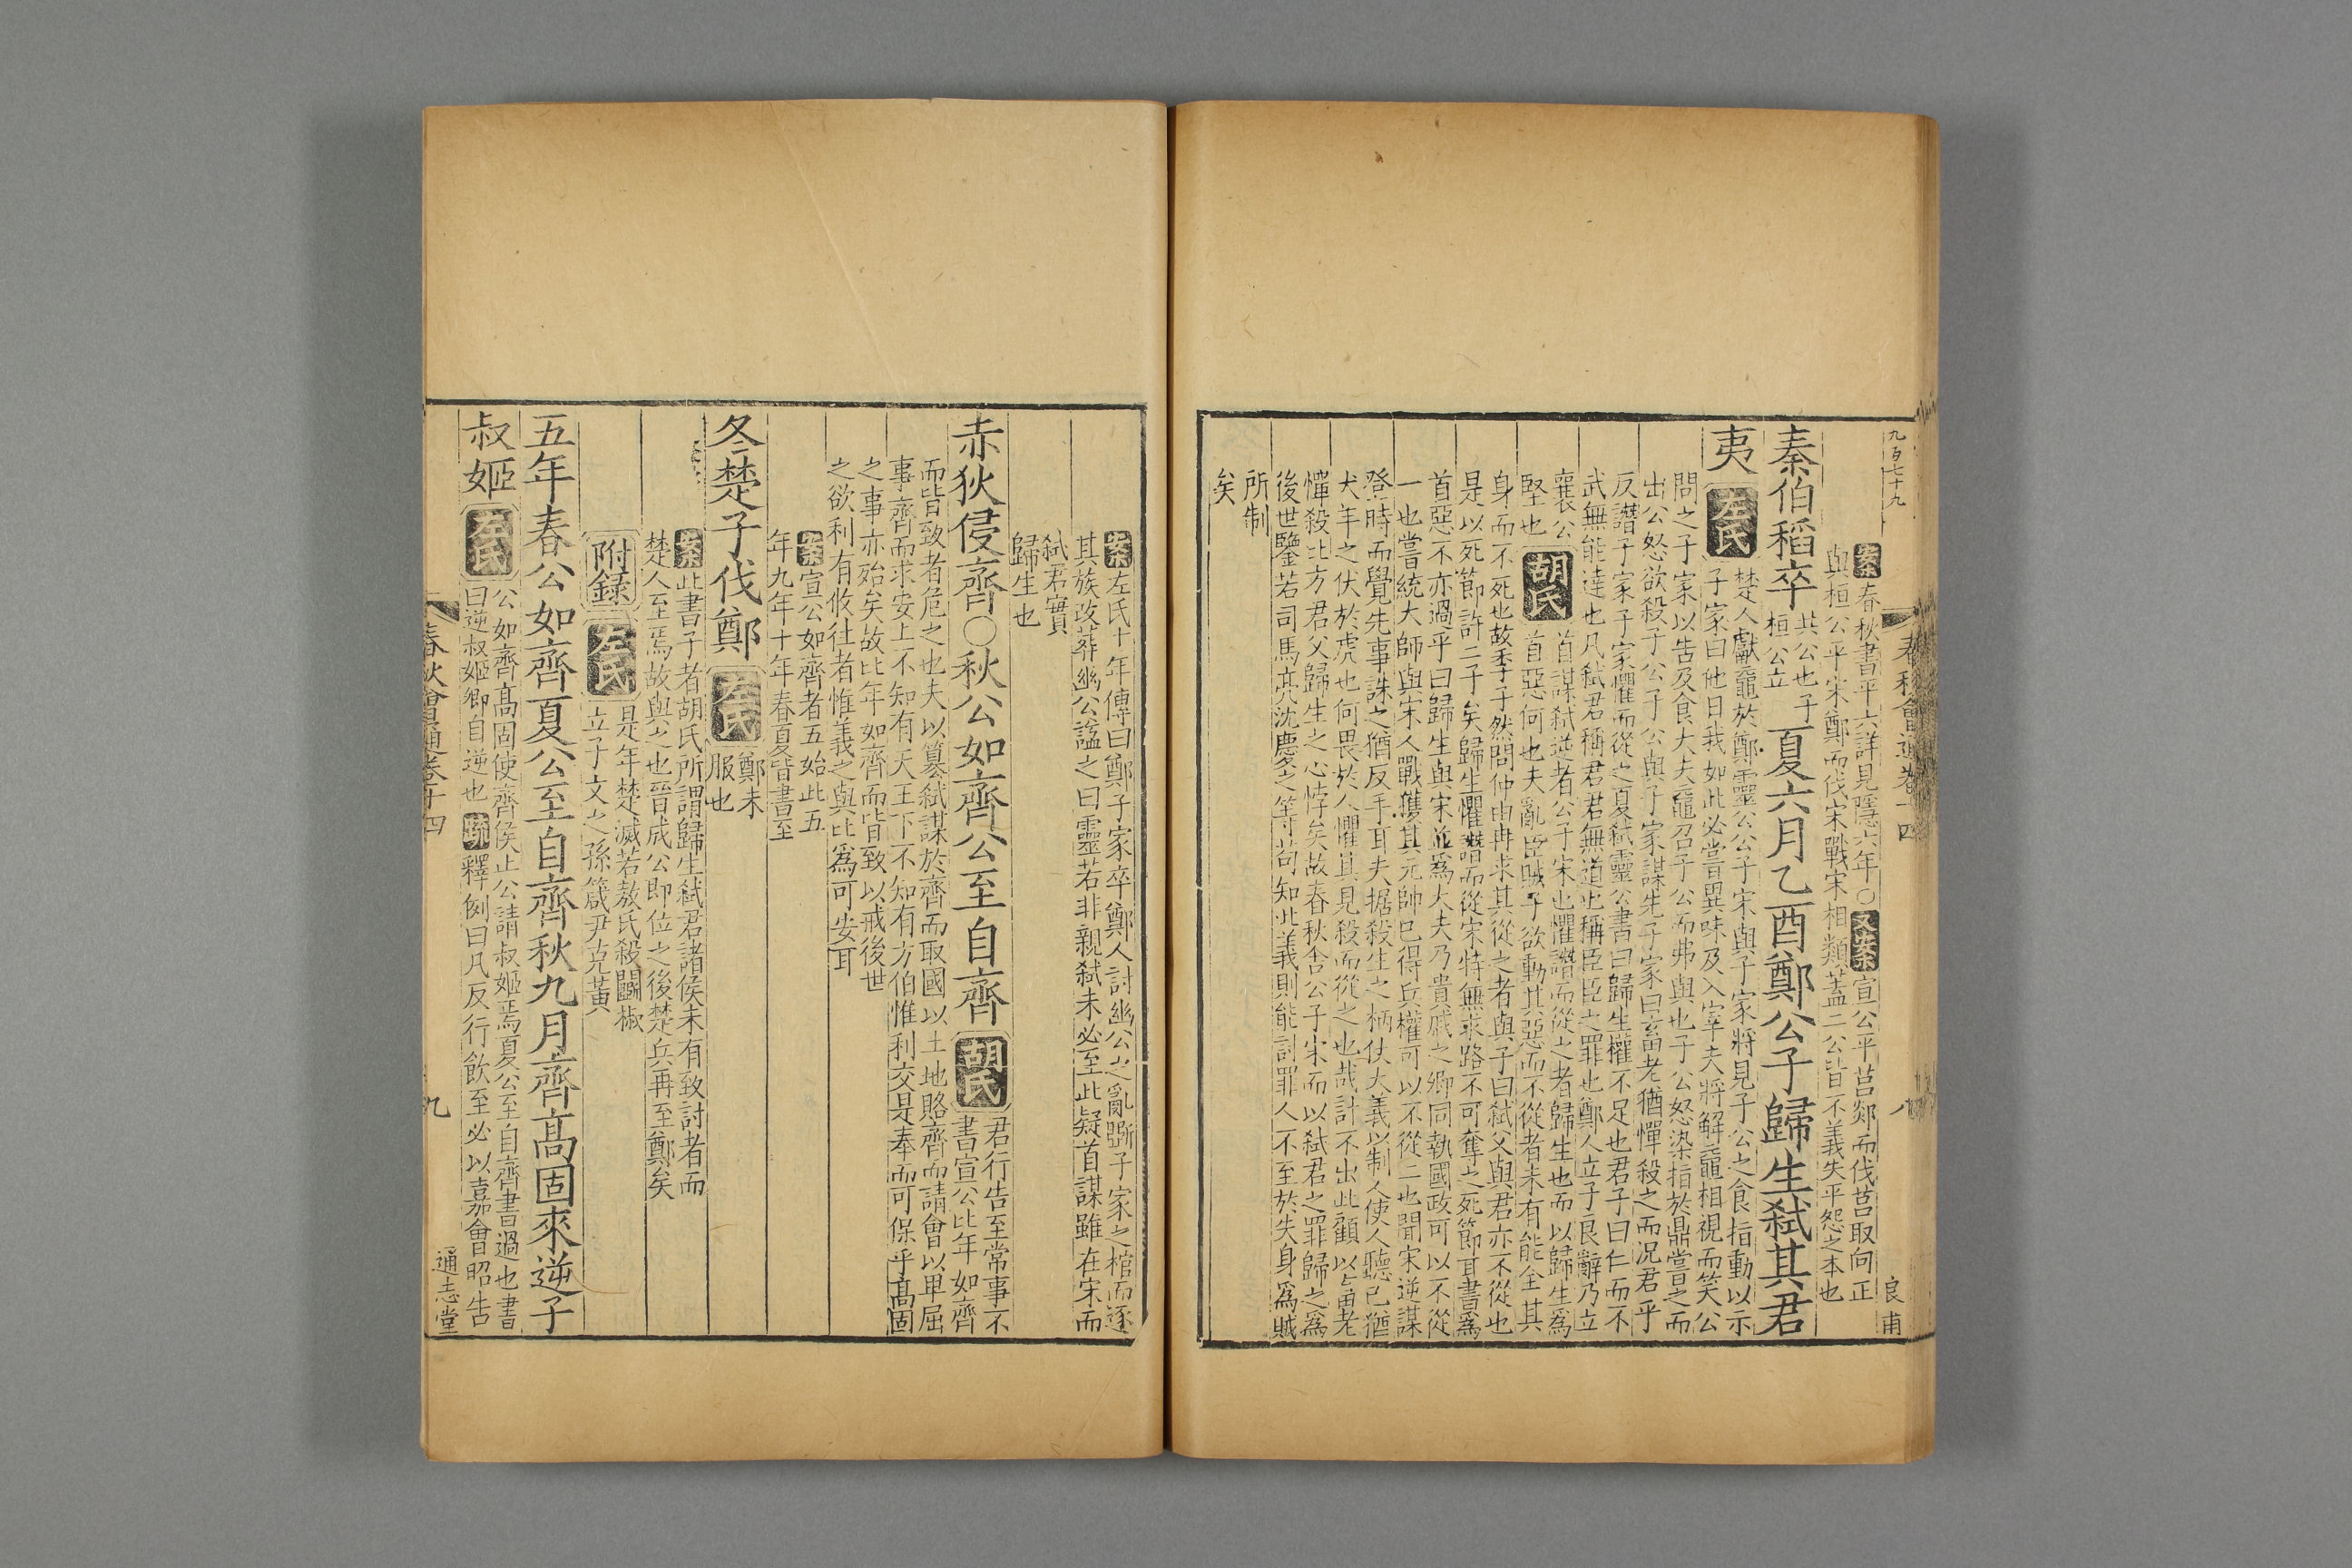 九百七十九
春秋會通卷十四
八
良甫
案春秋書平六詳見隱六年〇又案宣公平莒郯而伐莒取向正
與桓公平宋鄭而伐宋戰宋相類蓋二公皆不義失平怨之本也
秦伯稻卒共公也子桓公立夏六月乙酉鄭公子歸生弒其君
夷左氏楚人獻黿於鄭靈公公子宋與子家將見子公之食指動以示
子家曰他日我如此必嘗異味及入宰夫將解黿相視而笑公
問之子家以告及食大夫黿召子公而弗與也子公怒染指於鼎嘗之而
出公怒欲殺子公子公與子家謀先子家曰畜老猶憚殺之而況君乎
反譖子家子家懼而從之夏弒靈公書曰歸生權不足也君子曰仁而不
武無能達也凡弒君稱君君無道也稱臣臣之罪也鄭人立子良辭乃立
襄公
堅也胡氏首謀弒逆者公子宋也懼譖而從之者歸生也而以歸生為
首惡何也夫亂臣賊子欲動其惡而不從者未有能全其
身而不死也故季子然問仲由冉求其從之者與子曰弒父與君亦不從也
是以死節許二子矣歸生懼譖而從宋特無求路不可奪之死節耳書爲
首惡不亦過乎曰歸生與宋並爲大夫乃貴戚之卿同執國政可以不從
一也嘗統大師與宋人戰獲其元帥已得兵權可以不從二也聞宋逆謀
登時而覺先事誅之猶反手耳夫据殺生之柄仗大義以制人使人聽己猶
犬羊之伏於虎也何畏於人懼其見殺而從之也哉計不出此顧以畜老
憚殺比方君父歸生之心悖矣故春秋舍公子宋而以弒君之罪歸之爲
後世鑒若司馬亮沈慶之等苟知此義則能討罪人不至於失身爲賊
所制
矣
案左氏十年傳曰鄭子家卒鄭人討幽公之亂斲子家之棺而逐
其族改葬幽公謚之曰靈若非親弒未必至此疑首謀雖在宋而
弒君實
歸生也
赤狄侵齊〇秋公如齊公至自齊胡氏君行告至常事不
書宣公比年如齊
而皆致者危之也夫以篡弒謀於齊而取國以土地賂齊而請會以卑屈
事齊而求安上不知有天王下不知有方伯惟利交是奉而可保乎高固
之事亦殆矣故比年如齊而皆致以戒後世
之欲利有攸往者惟義之與比爲可安耳
案宣公如齊者五始此五
年九年十年春夏皆書至
冬楚子伐鄭左氏鄭未服也
案此書子者胡氏所謂歸生弒君諸侯未有致討者而
楚人至焉故與之也晉成公即位之後楚兵再至鄭矣
附錄左氏是年楚滅若敖氏殺鬭椒
立子文之孫箴尹克黃
五年春公如齊夏公至自齊秋九月齊高固來逆子
叔姬左氏公如齊高固使齊侯止公請叔姬焉夏公至自齊書過也書
曰逆叔姬卿自逆也疏釋例曰凡反行飲至必以嘉會昭告
春秋會通卷十四
九
通志堂